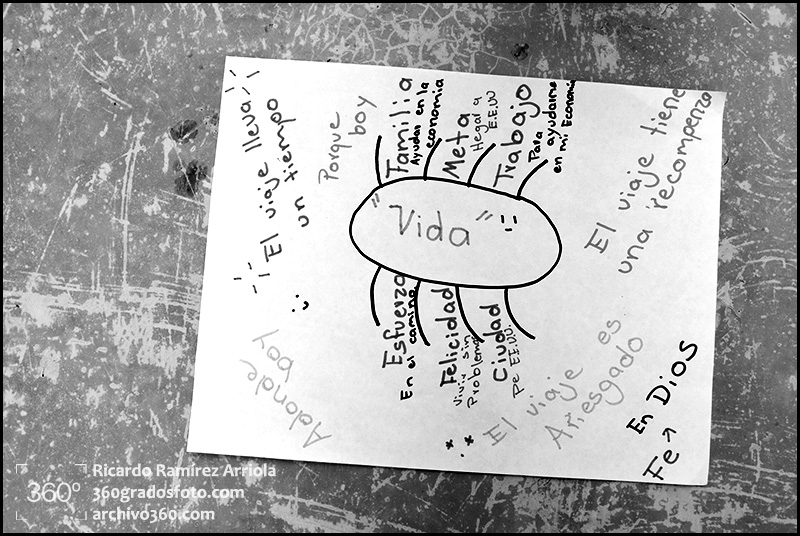 "Vida"
Porque
boy
Familia
Ayudar en la
economia
Meta
Hegal a
E.E.UU
Trabajo
Para
ayudarme
en mi Economia
El viaje lleva
un tiempo
El viaje tiene
una recompenza
Adonde
boy
Esfuerzo
En el camino
Felicidad
Vivir sin
Problema
Ciudad
De EE.UU.
El viaje es
Arriesgado
Fe → En Dios
360°
Ricardo Ramírez Arriola
360gradosfoto.com
archivo360.com